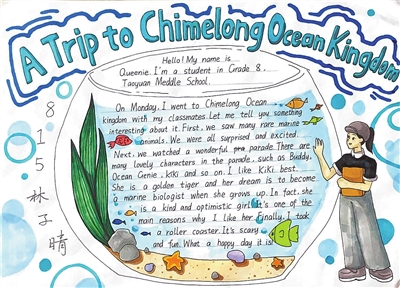 A Trip to Chimelong Ocean Kingdom
Hello! My name is
Queenie. I'm a student in Grade 8,
Taoyuan Meddle School.
On Monday, I went to Chimelong Ocean
kingdom with my classmates. Let me tell you something
interesting about it. First, we saw many rare marine
animals. We were all surprised and excited.
Next, we watched a wonderful parade. There are
many lovely characters in the parade, such as Buddy,
Ocean Genie, KiKi and so on. I like KiKi best.
She is a golden tiger and her dream is to become
a marine biologist when she grows up. In fact, she
is a kind and optimistic girl. It's one of the
main reasons why I like her. Finally, I took
a roller coaster. It's scary
and fun. What a happy day it is!
815林子晴